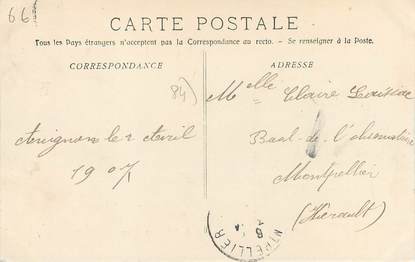 66
CARTE POSTALE
Tous les Pays étrangers n'acceptent pas la Correspondance au recto. – Se renseigner à la Poste.
CORRESPONDANCE
ADRESSE
84)
Avignon le 2 Avril
1907
Melle Claire
Boul. de l'observatoire
Montpellier
(Hérault)
MTPELLIER